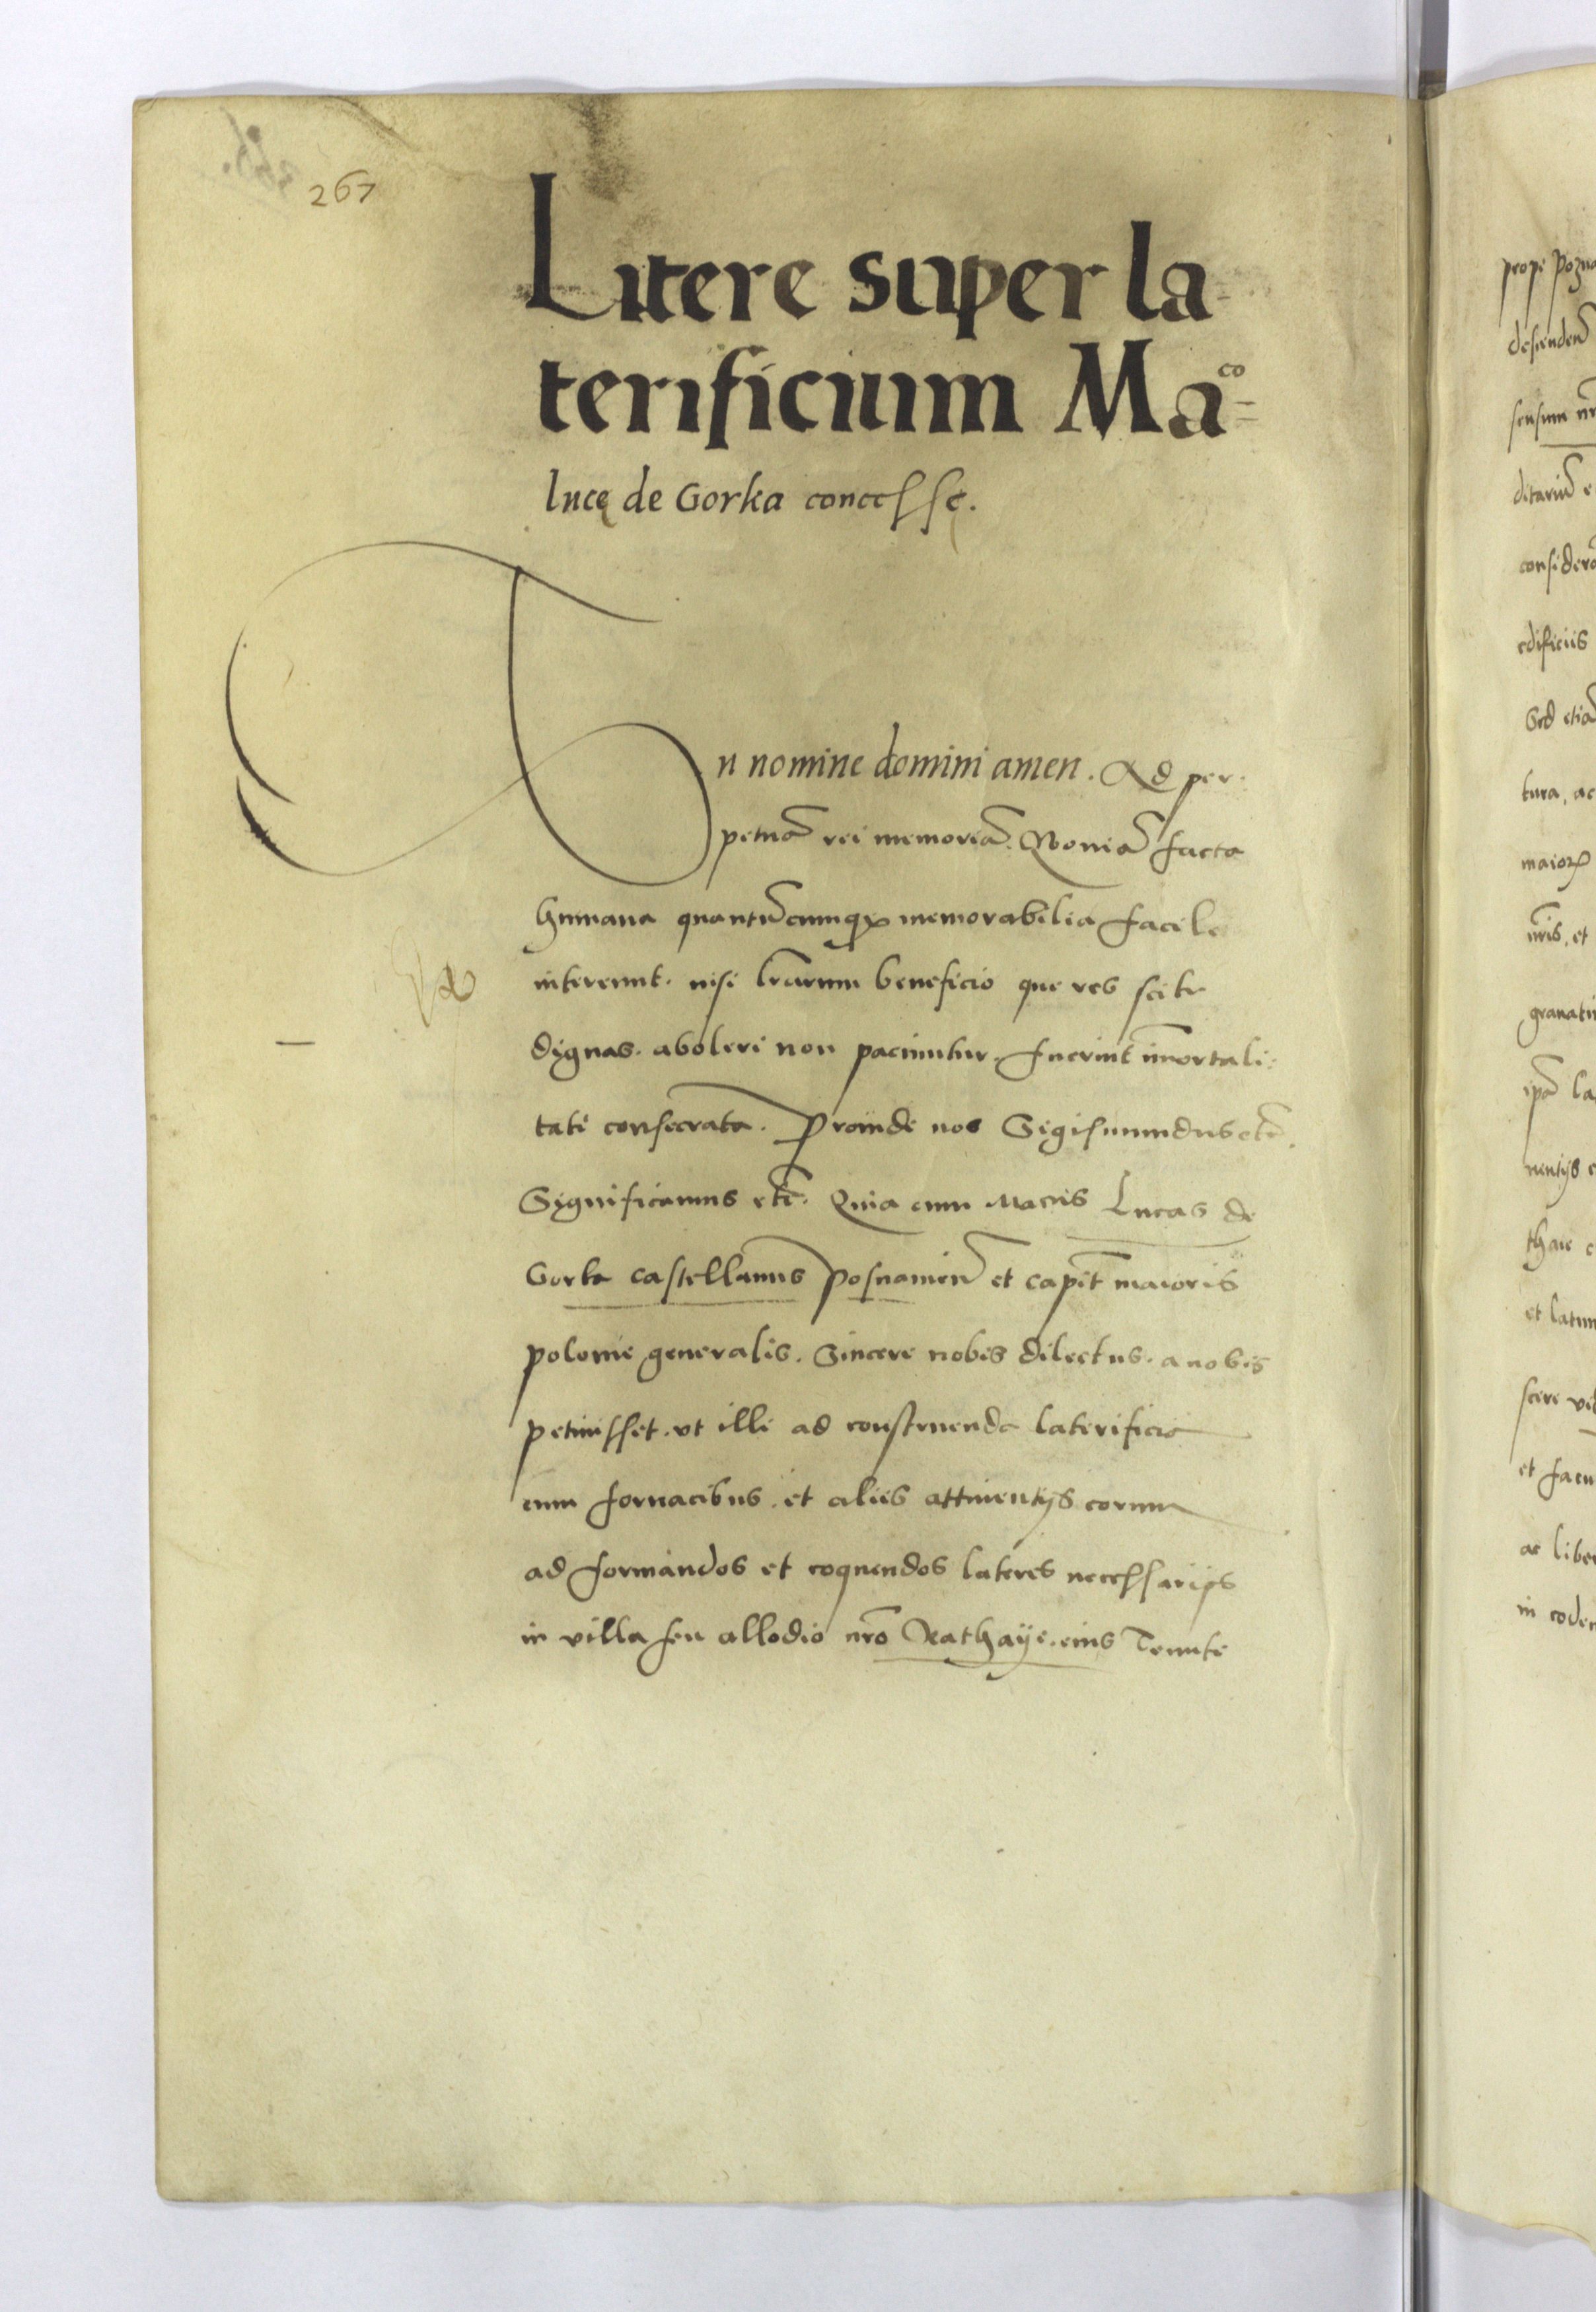 267
Litere super la-
terificium Ma^co=
luce de Gorka concesse.
In nomine domini amen. Ad per-
petuã rei memoriã. Qoniã facta
humana quantũcumq memorabilia facile
intereunt. nisi lrarum beneficio que res scitu
dignas. aboleri non paciuntur. fuerint imortali-
tati consecrata. Proinde nos Sigismundus etc.
Significamus etc. Quia cum Macus Lucas de
Gorka castellanus Posnanien et capit maioris
polonie generalis. Sincere nobis dilectus. a nobis
petiuisset. vt illi ad construenda laterificia
cum fornacibus. et aliis attinentijs eorum
ad formandos et coquendos lateres necessarijs
in villa seu allodio nro Rathaÿe. eius Tenute
prope Pozna
desiendeñ
sensum nr
ditariũ e
considera
edificiis
Sed etiã
tura, ac
maior
uris, et
granati
ipã la
nentijs e
thaie e
et latum
scire vi
et facu
ac liber
in eodem